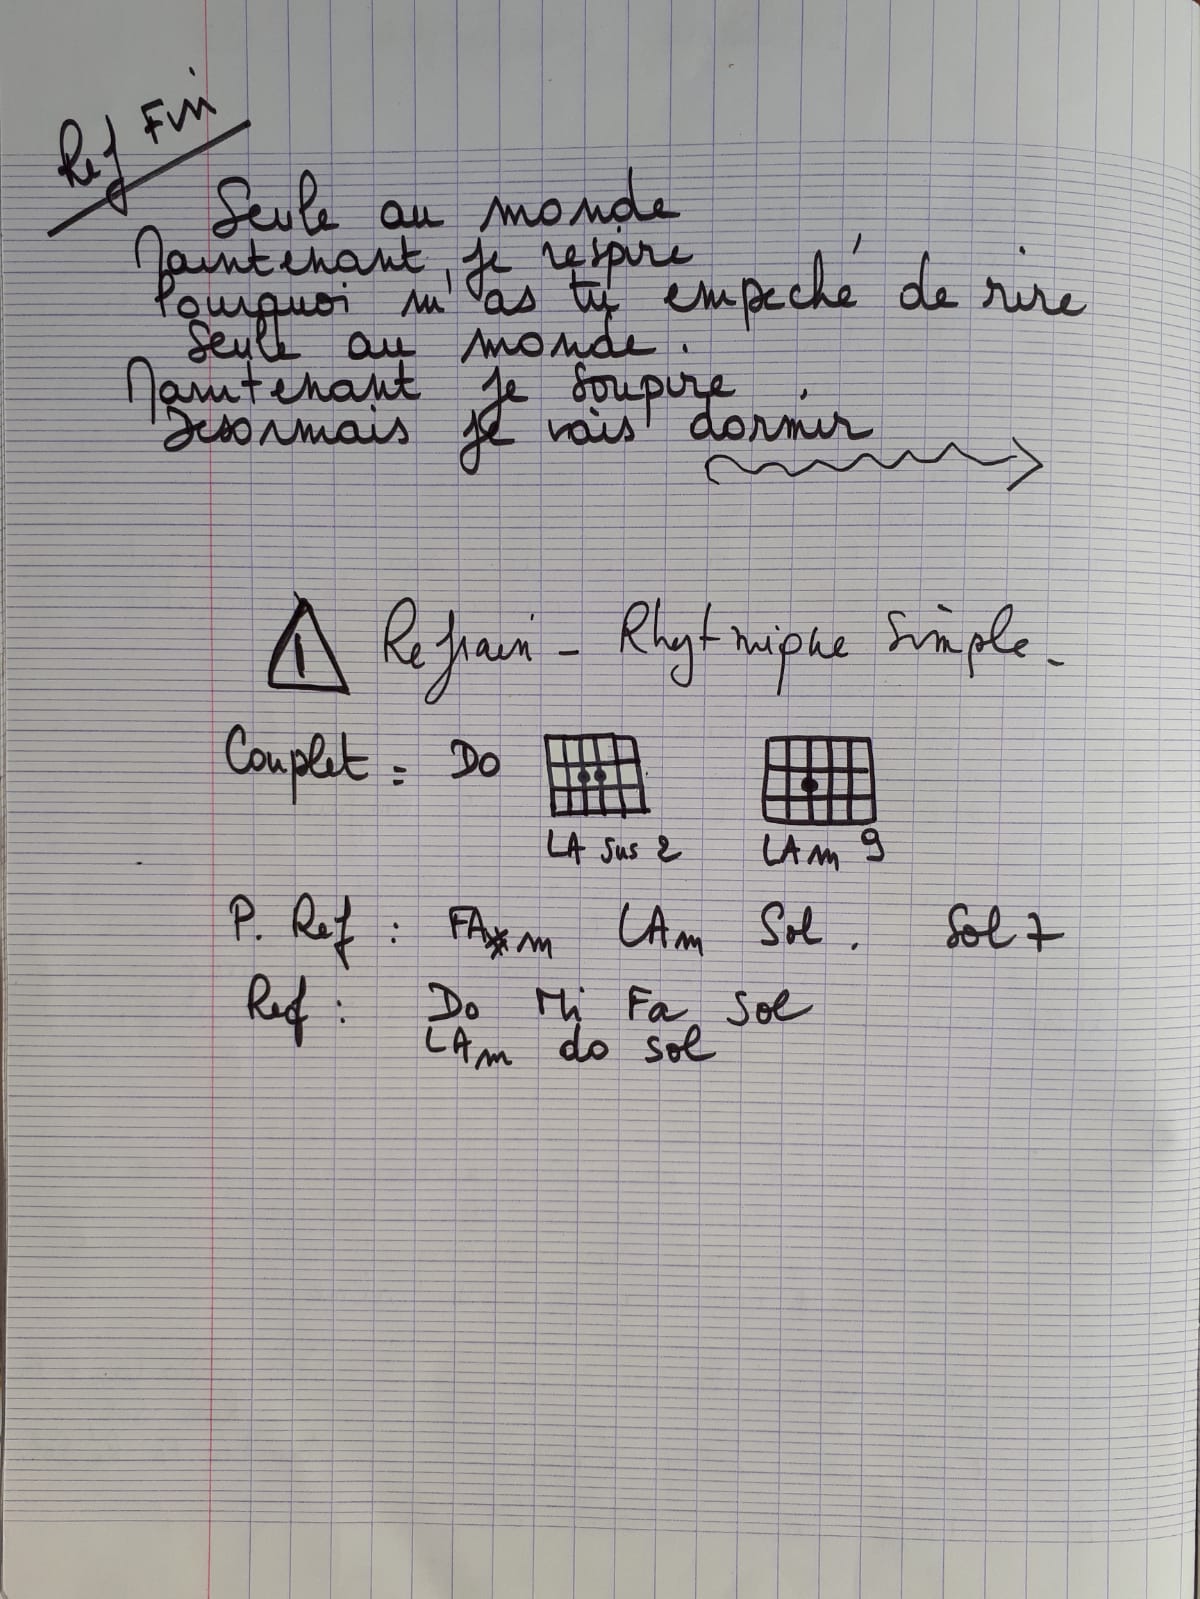 Ref Fin
Seule au monde
Maintenant, je respire
Pourquoi m'as tu empeché de rire
Seule au monde.
Maintenant je soupire
Desormais je vais dormir
! Refrain - Rhytmique Simple.
Couplet = Do
LA sus 2 LAm 9
P. Ref : FA*m LAm Sol. Sol 7
Ref : Do Mi Fa Sol
LAm do sol